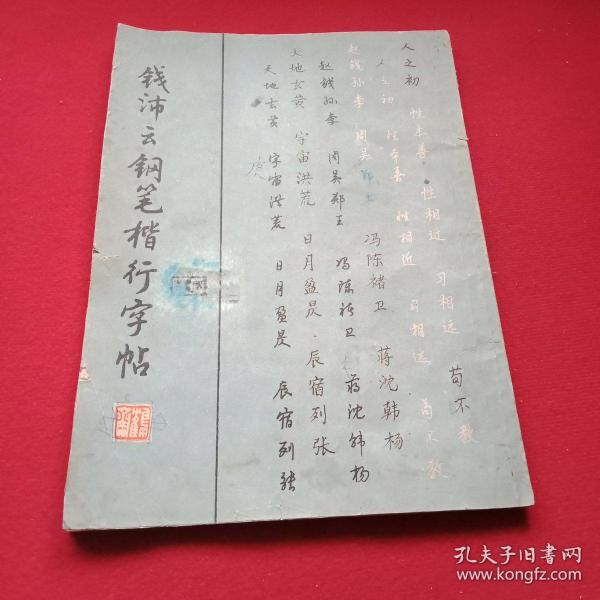 钱沛云钢笔楷行字帖
人之初 性本善 性相近 习相远 苟不教
人之初 性本善 性相近 习相远 苟不教
赵钱孙李 周吴郑王 冯陈褚卫 蒋沈韩杨
赵钱孙李 周吴郑王 冯陈褚卫 蒋沈韩杨
天地玄黄 宇宙洪荒 日月盈昃 辰宿列张
天地玄黄 宇宙洪荒 日月盈昃 辰宿列张
孔夫子旧书网
www.kongfz.com